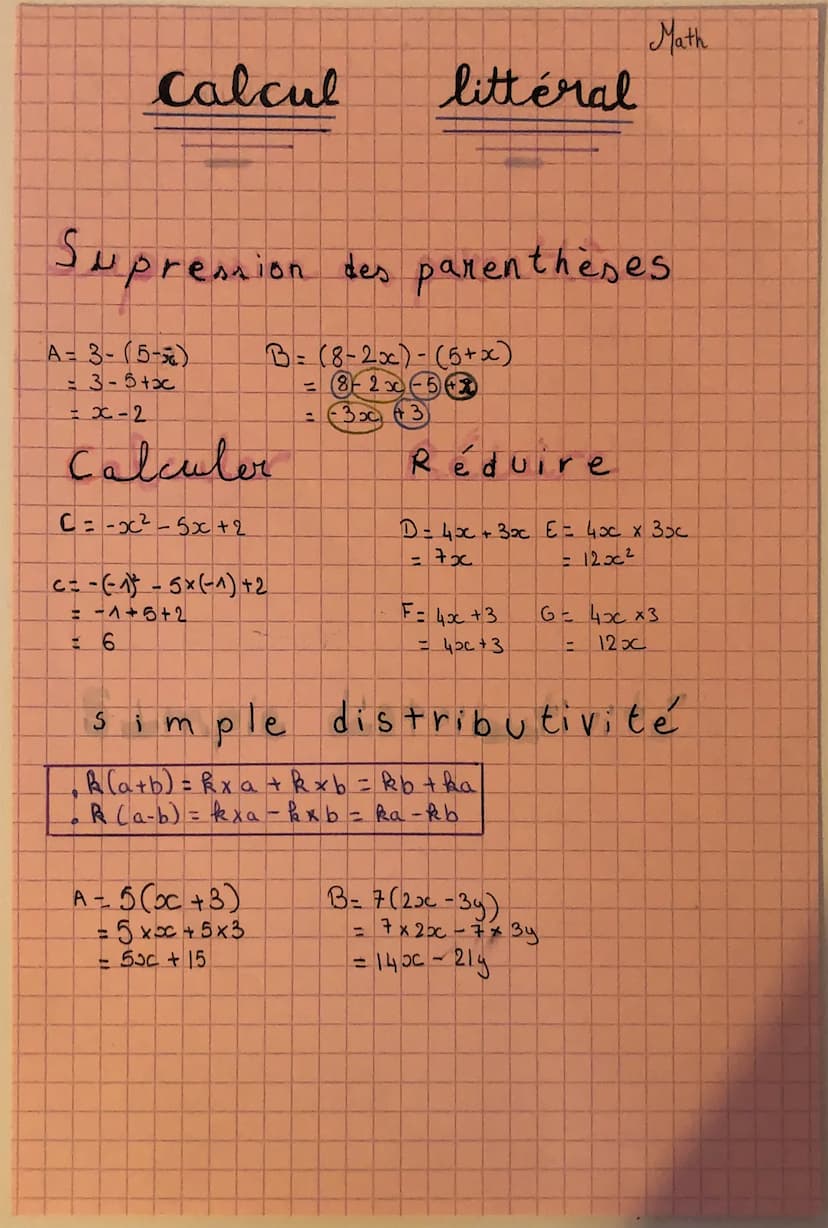 Math
Calcul littéral
Supression des parenthèses
A = 3 - (5 - x)
= 3 - 5 + x
= x - 2
B = (8 - 2x) - (5 + x)
= 8 - 2x - 5 +
= -3x + 3
Calculer
C = -x² - 5x + 2
C = -(-1)² - 5 × (-1) + 2
= -1 + 5 + 2
= 6
Réduire
D = 4x + 3x
= 7x
E = 4x × 3x
= 12x²
F = 4x + 3
= 4x + 3
G = 4x × 3
= 12x
simple distributivité
. k (a+b) = k × a + k × b = kb + ka
. k (a-b) = k × a - k × b = ka - kb
A = 5(x + 3)
= 5 × x + 5 × 3
= 5x + 15
B = 7(2x - 3y)
= 7 × 2x - 7 × 3y
= 14x - 21y